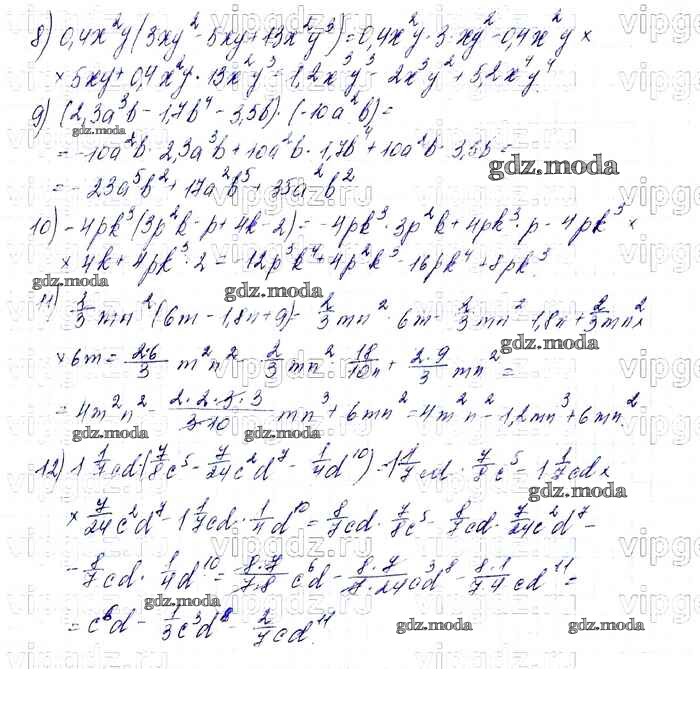 8) 0,4x²y(3xy² - 5xy + 13x²y³) = 0,4x²y · 3 · xy² - 0,4x²y ×
× 5xy + 0,4x²y · 13x²y³ = 1,2x³y³ - 2x³y² + 5,2x⁴y⁴.
9) (2,3a³b - 1,7b⁴ - 3,5b) · (-10a²b) =
= -10a²b · 2,3a³b + 10a²b · 1,7b⁴ + 10a²b · 3,5b =
= -23a⁵b² + 17a²b⁵ + 35a²b²
10) -4pk³(3p²k - p + 4k - 2) = -4pk³ · 3p²k + 4pk³ · p - 4pk³ ×
× 4k + 4pk³ · 2 = -12p³k⁴ + 4p²k³ - 16pk⁴ + 8pk³.
11) 2/3 mn²(6m - 1,8n + 9) = 2/3 mn² · 6m - 2/3 mn² · 1,8n + 2/3 mn² ×
× 6m = 2·6/3 m²n² - 2/3 mn² · 18/10 n + 2·9/3 mn² =
= 4m²n² - 2·2·3·3/3·10 mn³ + 6mn² = 4m²n² - 1,2mn³ + 6mn².
12) 1 1/7 cd(7/8 c⁵ - 7/24 c²d⁷ - 1/4 d¹⁰) = 1 1/7 cd · 7/8 c⁵ - 1 1/7 cd ×
× 7/24 c²d⁷ - 1 1/7 cd · 1/4 d¹⁰ = 8/7 cd · 7/8 c⁵ - 8/7 cd · 7/24 c²d⁷ -
- 8/7 cd · 1/4 d¹⁰ = 8·7/7·8 c⁶d - 8·7/7·24 c³d⁸ - 8·1/7·4 cd¹¹ =
= c⁶d - 1/3 c³d⁸ - 2/7 cd¹¹.
gdz.moda
gdz.moda
gdz.moda
gdz.moda
gdz.moda
gdz.moda
gdz.moda
gdz.moda
gdz.moda
gdz.moda
gdz.moda
gdz.moda